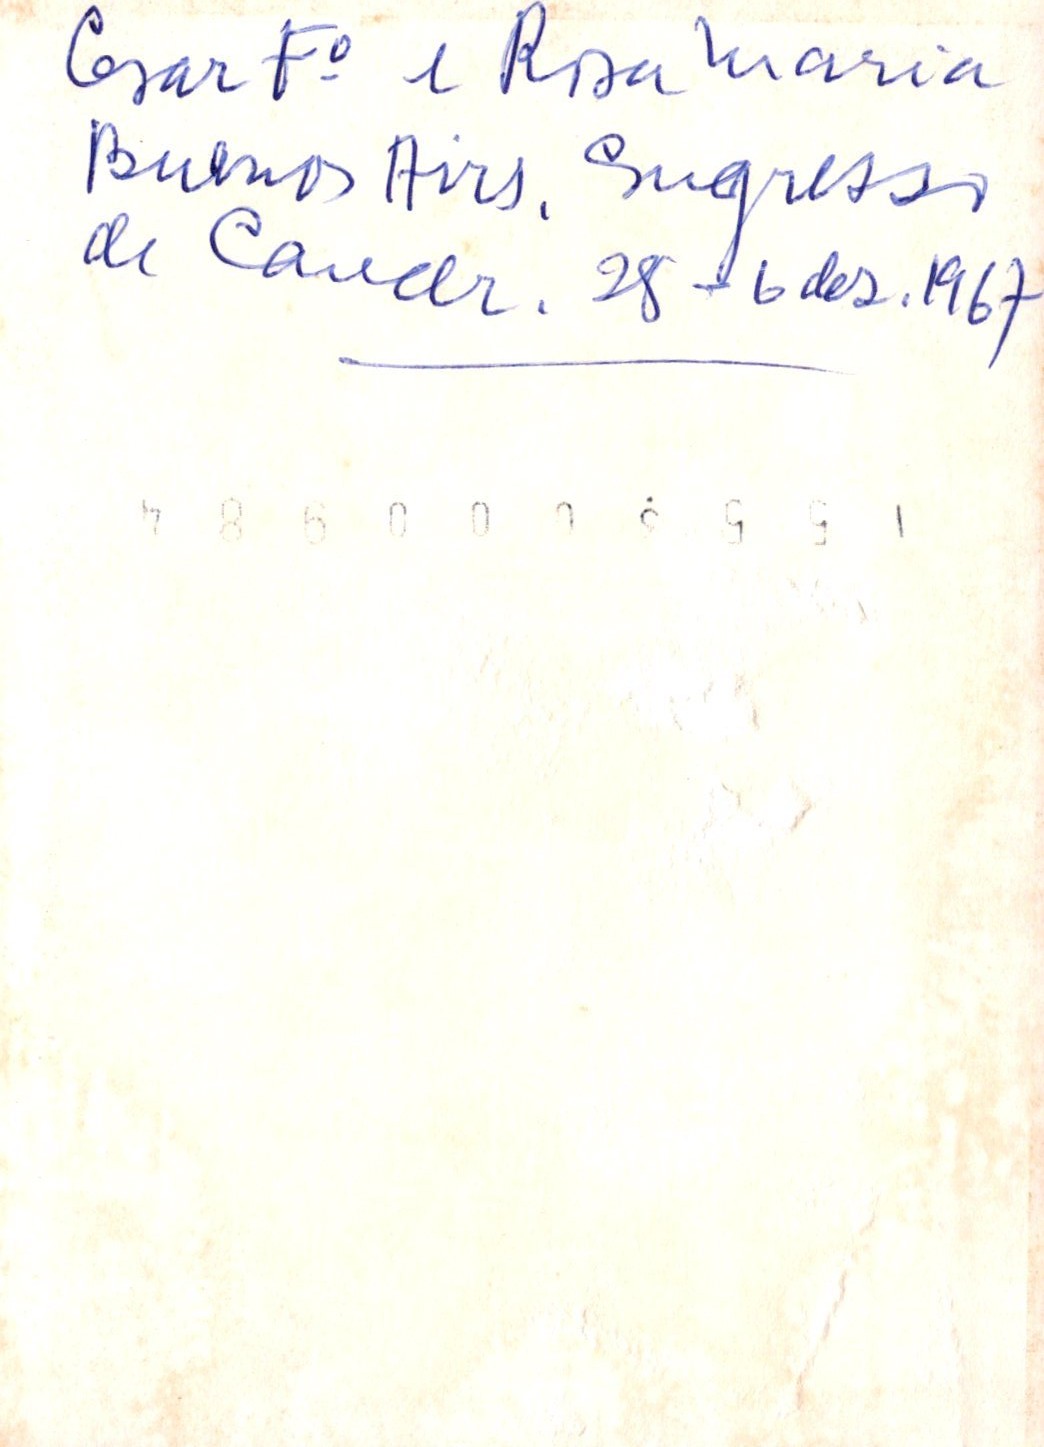 Cesar Fº e Rosa Maria
Buenos Aires. Congresso
de Cancer. 28 - 6 dez. 1967